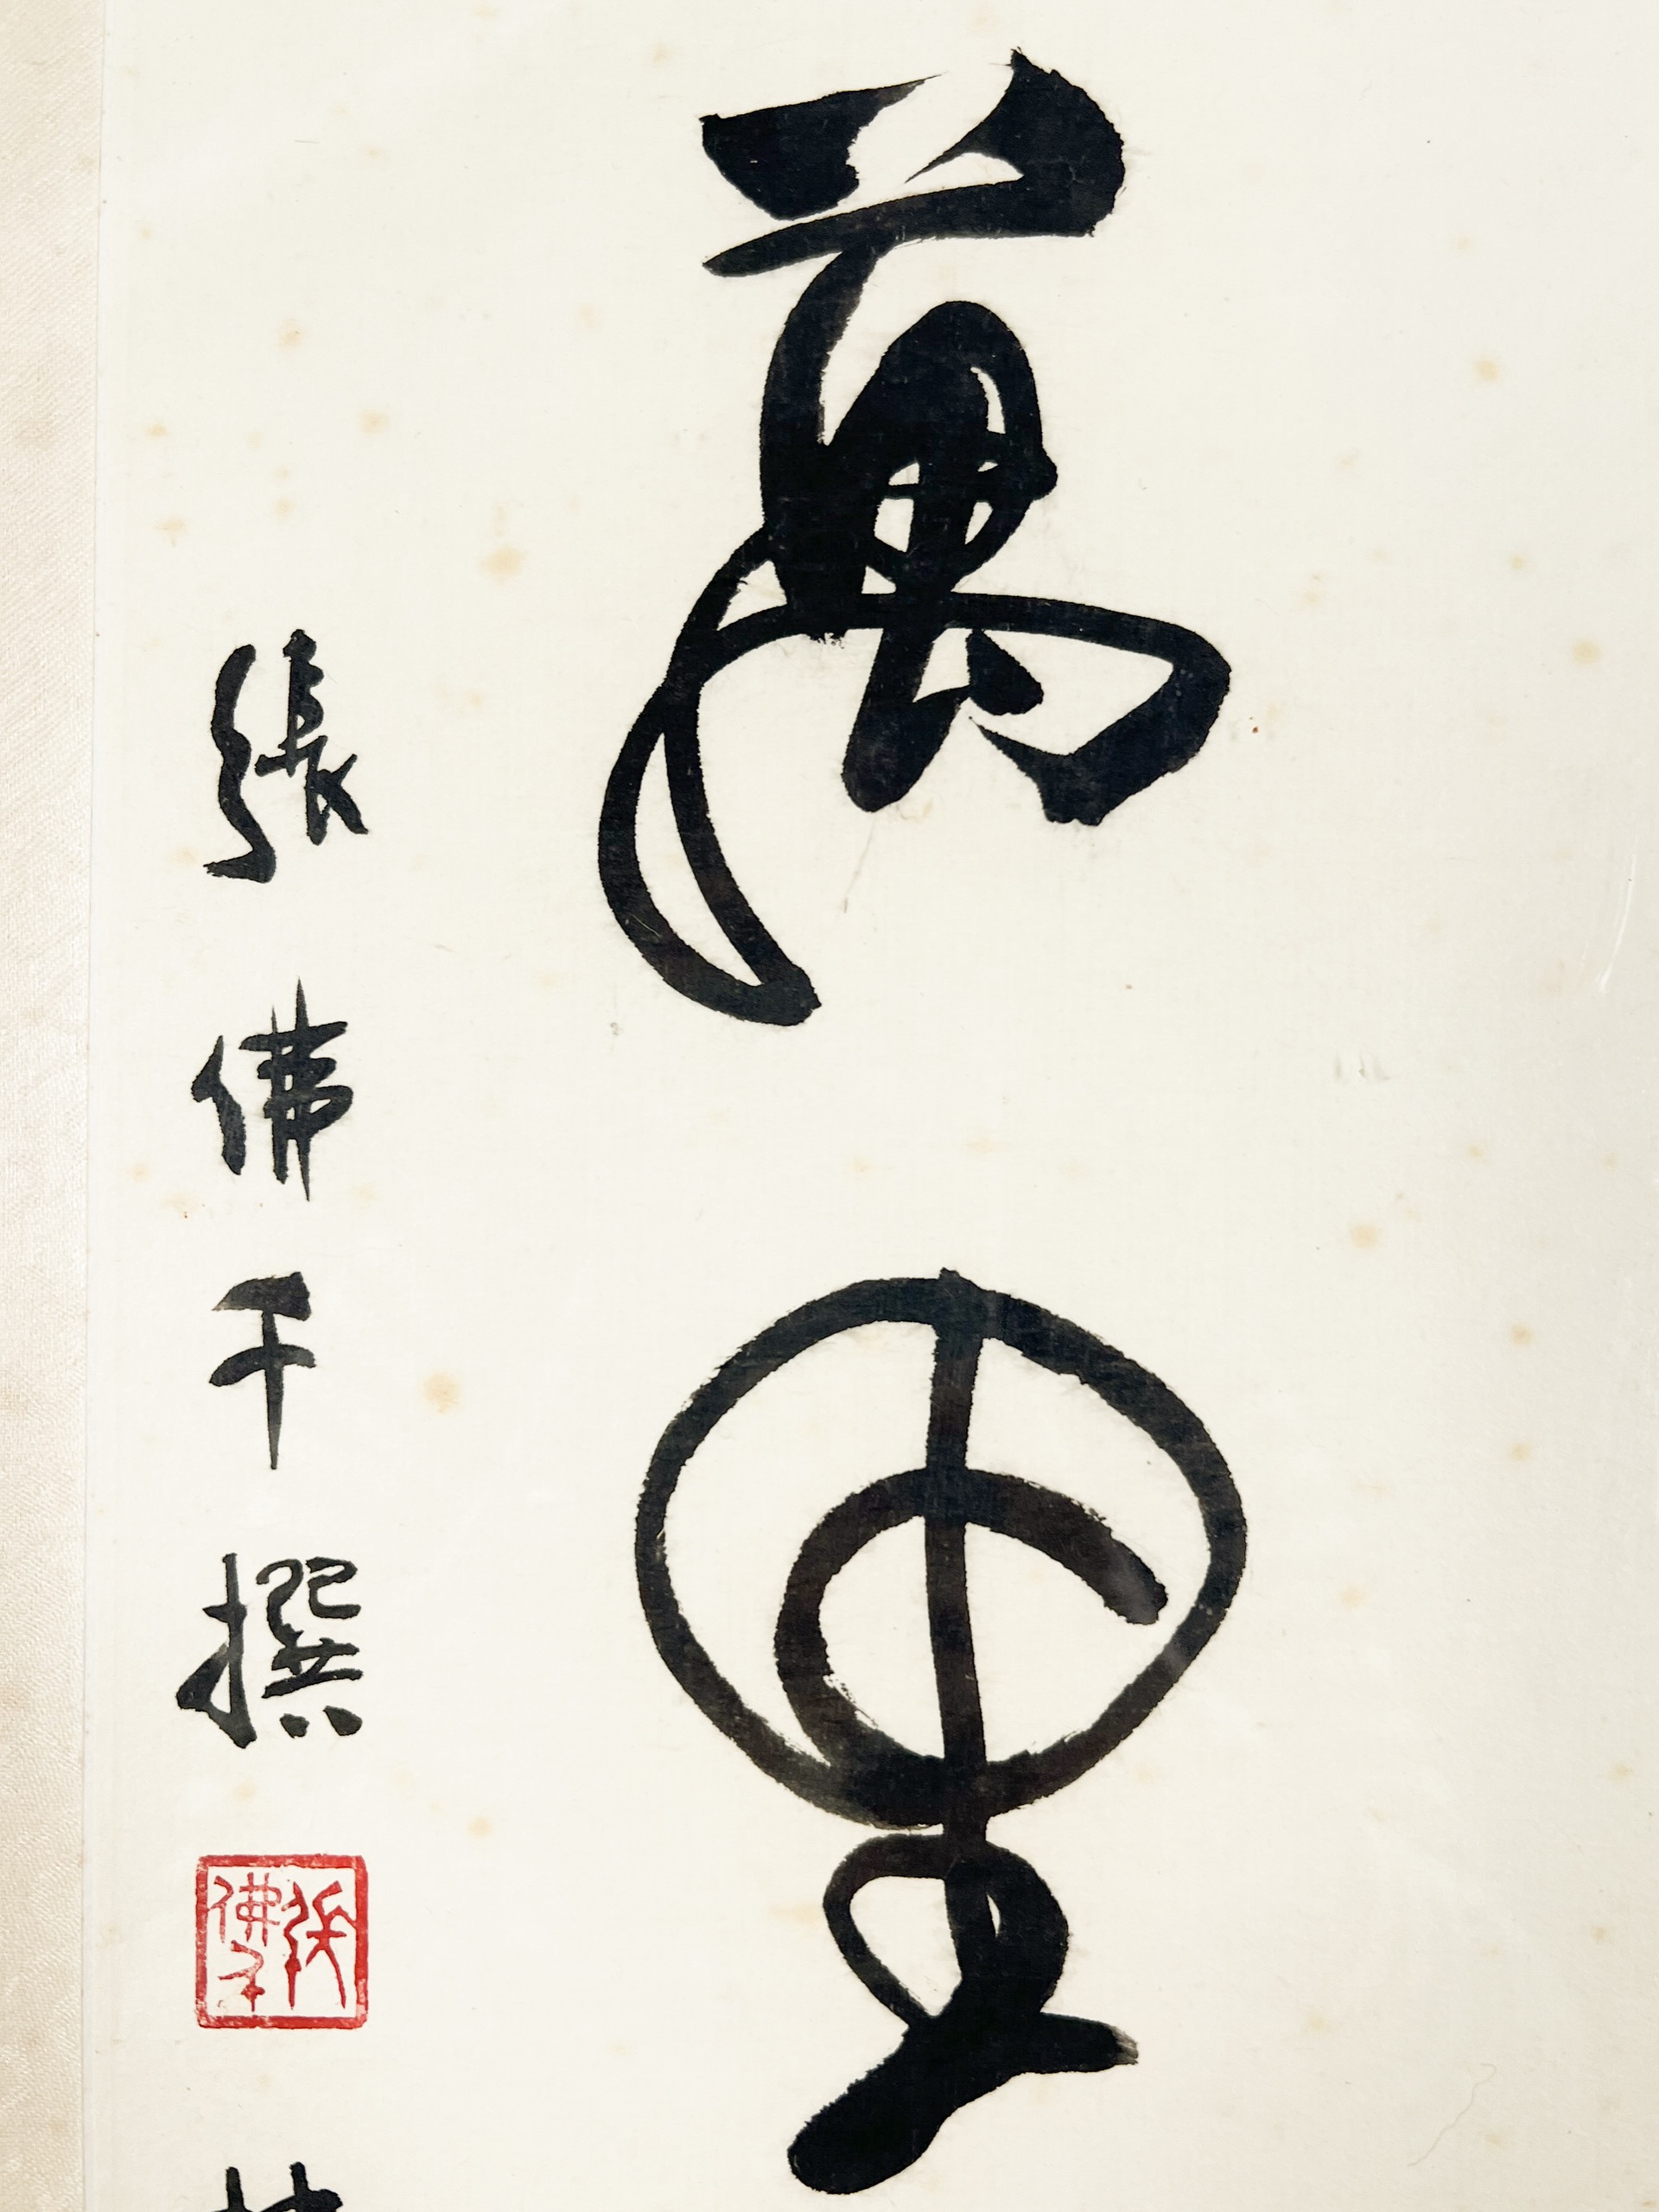 萬里
張佛千撰
張佛千